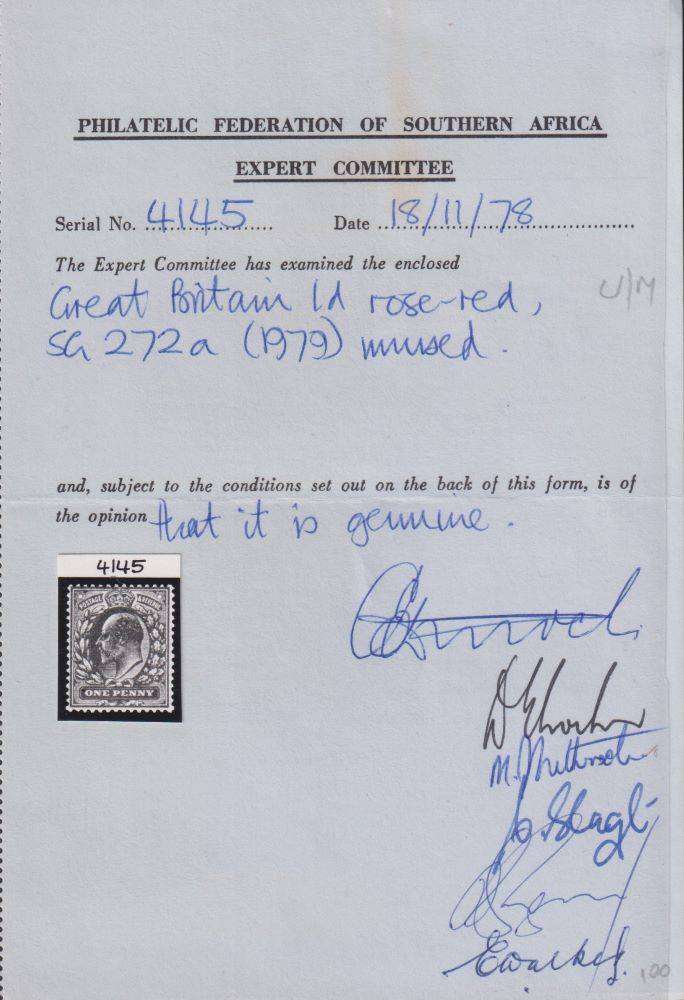 PHILATELIC FEDERATION OF SOUTHERN AFRICA
EXPERT COMMITTEE
Serial No. 4145 Date 18/11/78
The Expert Committee has examined the enclosed
Great Britain 1d rose-red, U/M
SG 272a (1979) unused.
and, subject to the conditions set out on the back of this form, is of
the opinion that it is genuine.
4145
POSTAGE REVENUE
ONE PENNY